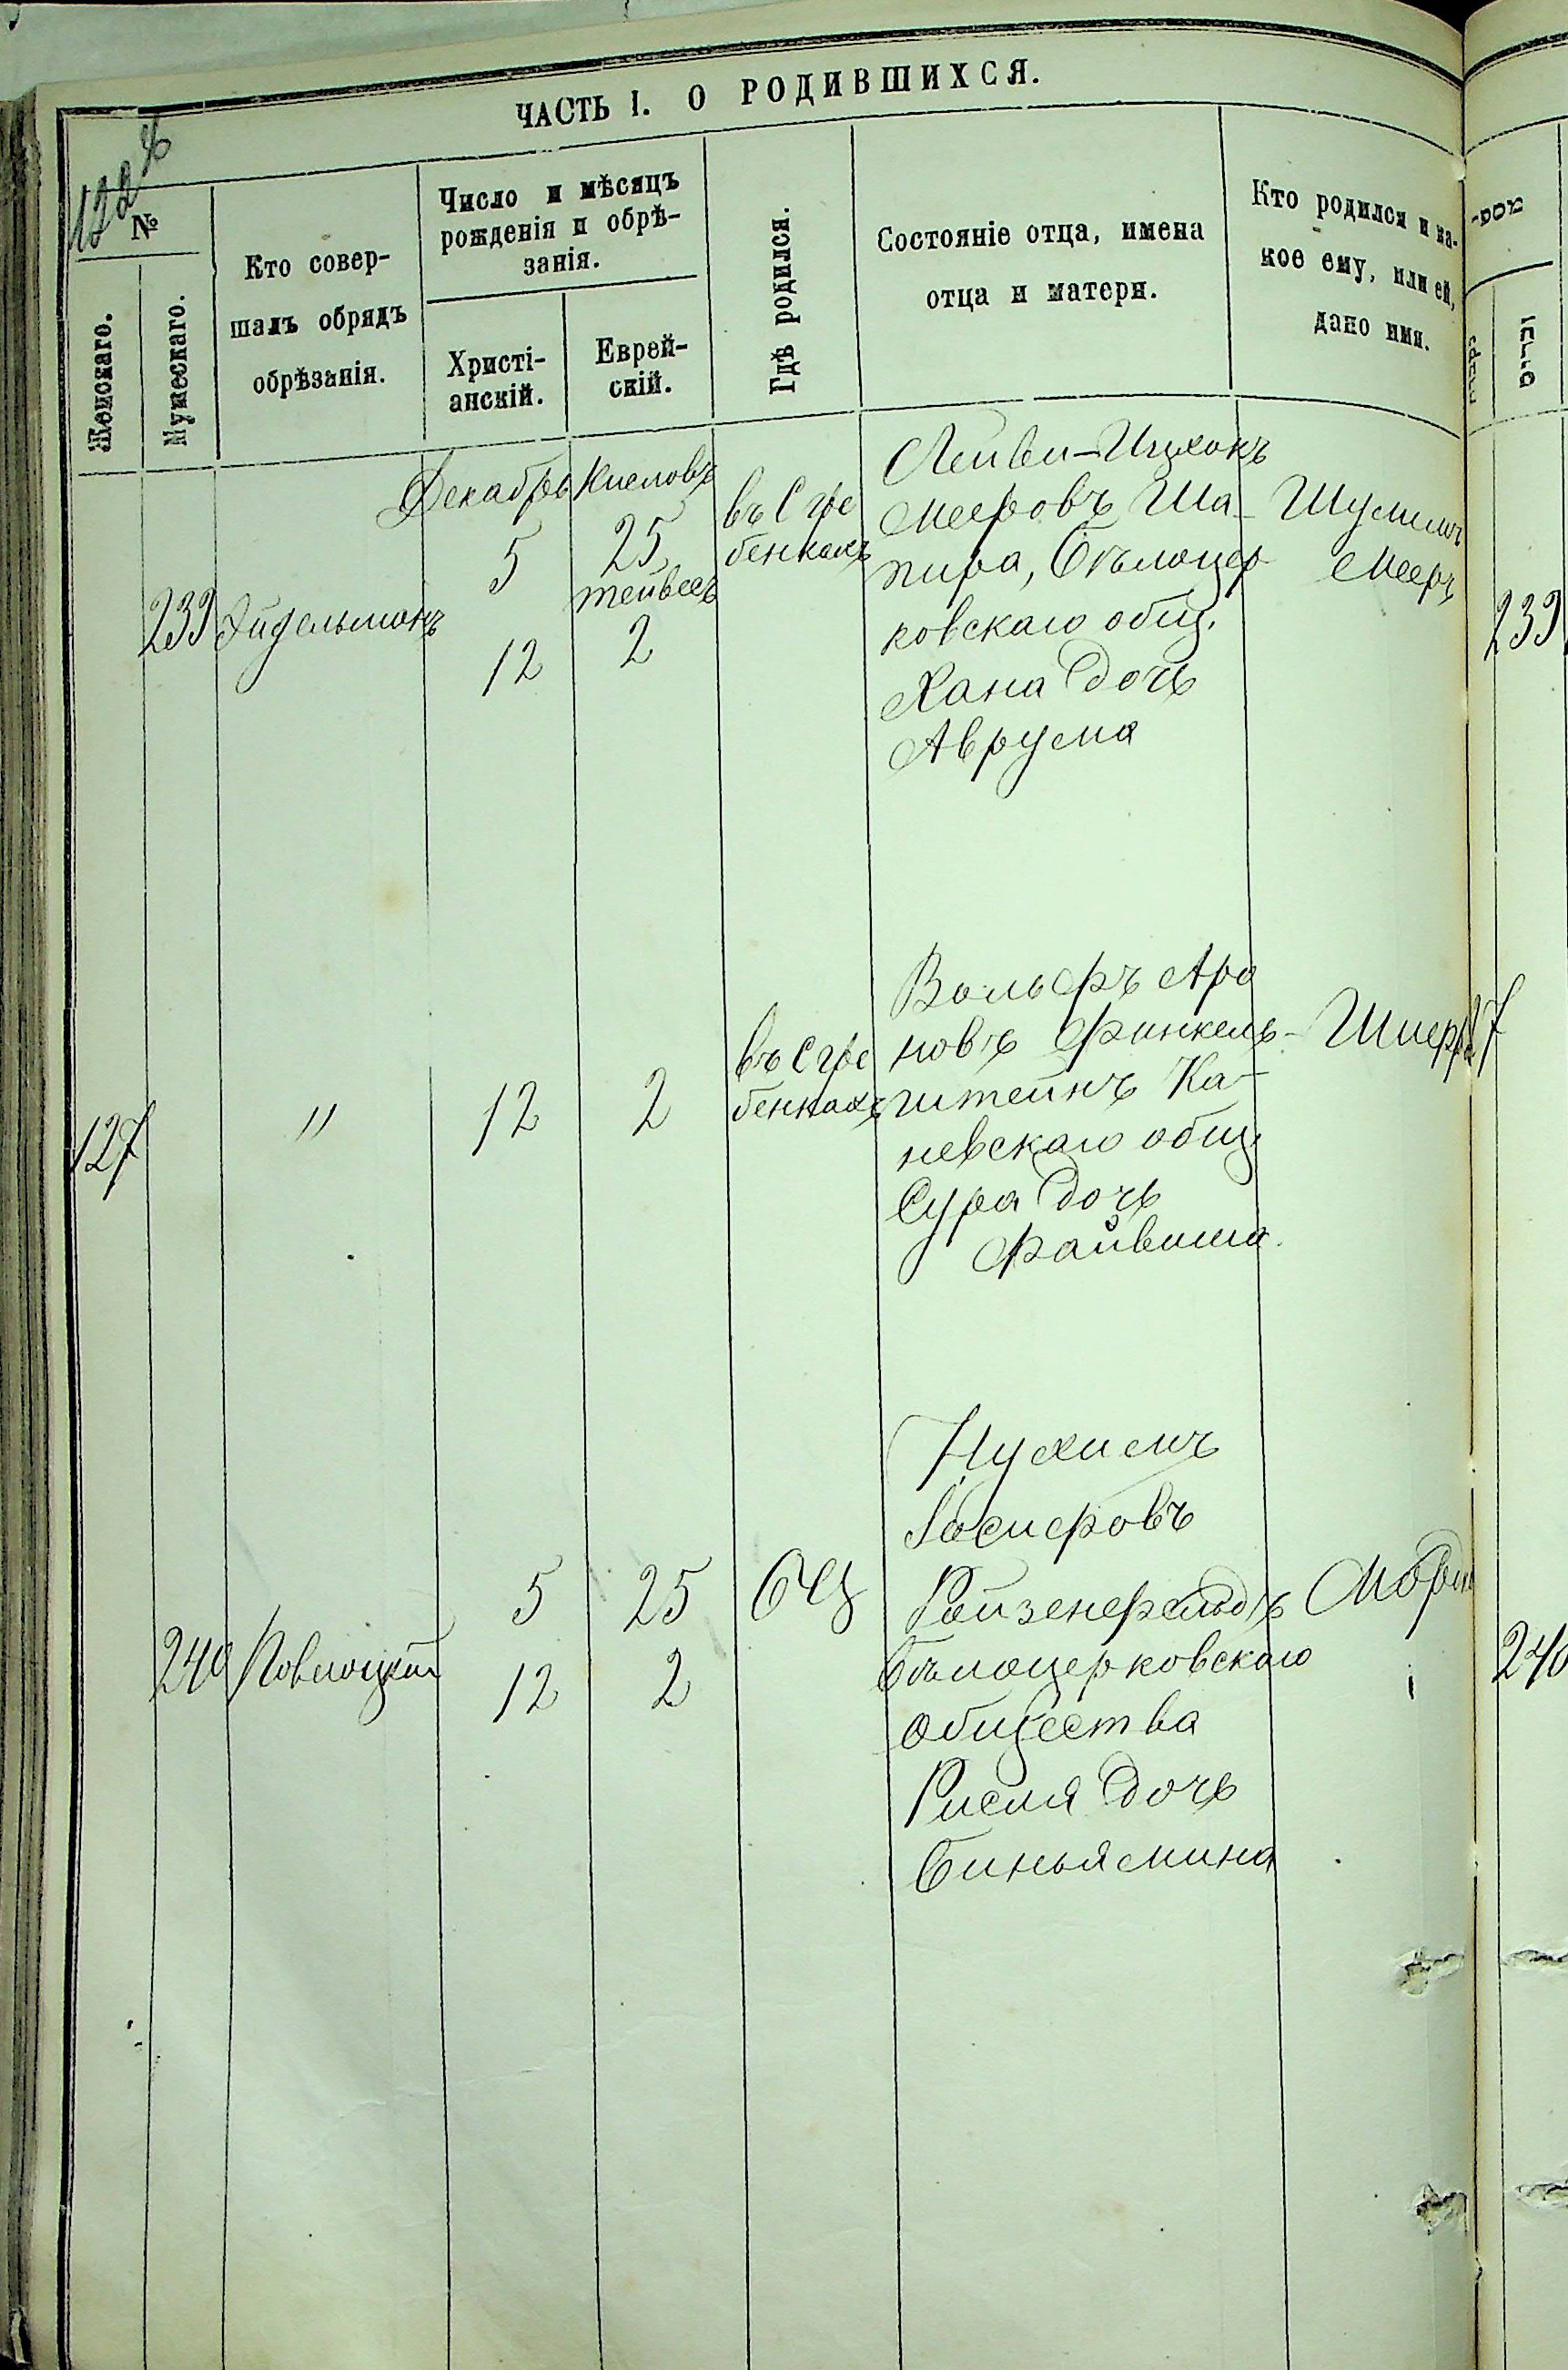 ЧАСТЬ I. О РОДИВШИХСЯ.
122
№
Женскаго.
Мужескаго.
Кто совер-
шалъ обрядъ
обрѣзанія.
Число и мѣсяцъ
рожденія и обрѣ-
занія.
Христі-
анскій.
Еврей-
скій.
Гдѣ родился.
Состояніе отца, имена
отца и матери.
Кто родился и ка-
кое ему, или ей,
дано имя.
239 Эйдельманъ
Декабрь Кисловъ
5 25
тейвесъ
12 2
въ с Гре
бенкахъ
Лейви-Ицхокъ
Мееровъ Ша-
пира, Бѣлоцер
ковскаго общ.
Хана дочь
Аврума
Шулимъ
Мееръ
239
127 " 12 2
въ с Гре
бенкахъ
Вольфъ Аро
новъ Финкель-
штейнъ Ка-
невскаго общ.
Сура дочь
Файвиша.
27
240 Паволоцкій
5 25
12 2
БЦ
Нухимъ
Іосифовъ
Ройзенфельдъ
Бѣлоцерковскаго
общества
Рися дочь
Биньямина
240